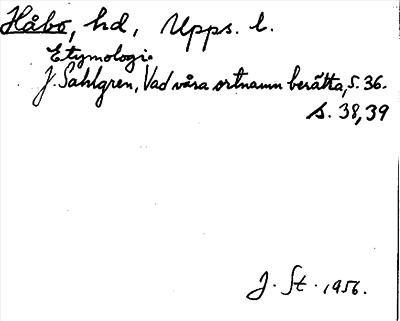 Håbo, hd, Upps. l.
Etymologi.
J. Sahlgren, Vad våra ortnamn berätta, s. 36.
s. 38, 39
J. St. 1956.